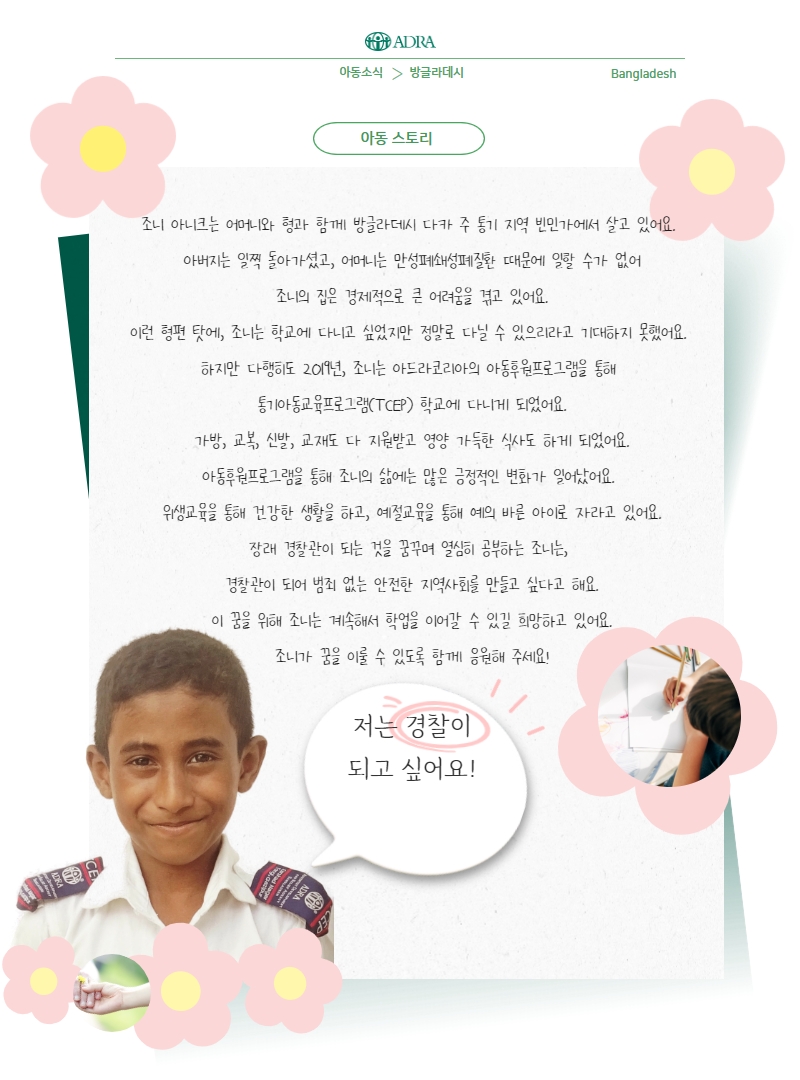 ADRA
아동소식 > 방글라데시
Bangladesh
아동 스토리
조니 아니크는 어머니와 형과 함께 방글라데시 다카 주 통기 지역 빈민가에서 살고 있어요.
아버지는 일찍 돌아가셨고, 어머니는 만성폐쇄성폐질환 때문에 일할 수가 없어
조니의 집은 경제적으로 큰 어려움을 겪고 있어요.
이런 형편 탓에, 조니는 학교에 다니고 싶었지만 정말로 다닐 수 있으리라고 기대하지 못했어요.
하지만 다행히도 2019년, 조니는 아드라코리아의 아동후원프로그램을 통해
통기아동교육프로그램(TCEP) 학교에 다니게 되었어요.
가방, 교복, 신발, 교재도 다 지원받고 영양 가득한 식사도 하게 되었어요.
아동후원프로그램을 통해 조니의 삶에는 많은 긍정적인 변화가 일어났어요.
위생교육을 통해 건강한 생활을 하고, 예절교육을 통해 예의 바른 아이로 자라고 있어요.
장래 경찰관이 되는 것을 꿈꾸며 열심히 공부하는 조니는,
경찰관이 되어 범죄 없는 안전한 지역사회를 만들고 싶다고 해요.
이 꿈을 위해 조니는 계속해서 학업을 이어갈 수 있길 희망하고 있어요.
조니가 꿈을 이룰 수 있도록 함께 응원해 주세요!
저는 경찰이
되고 싶어요!
ADRA
ADRA